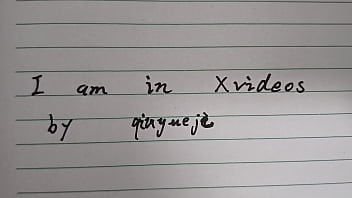 I am in Xvideos
by qinyueji